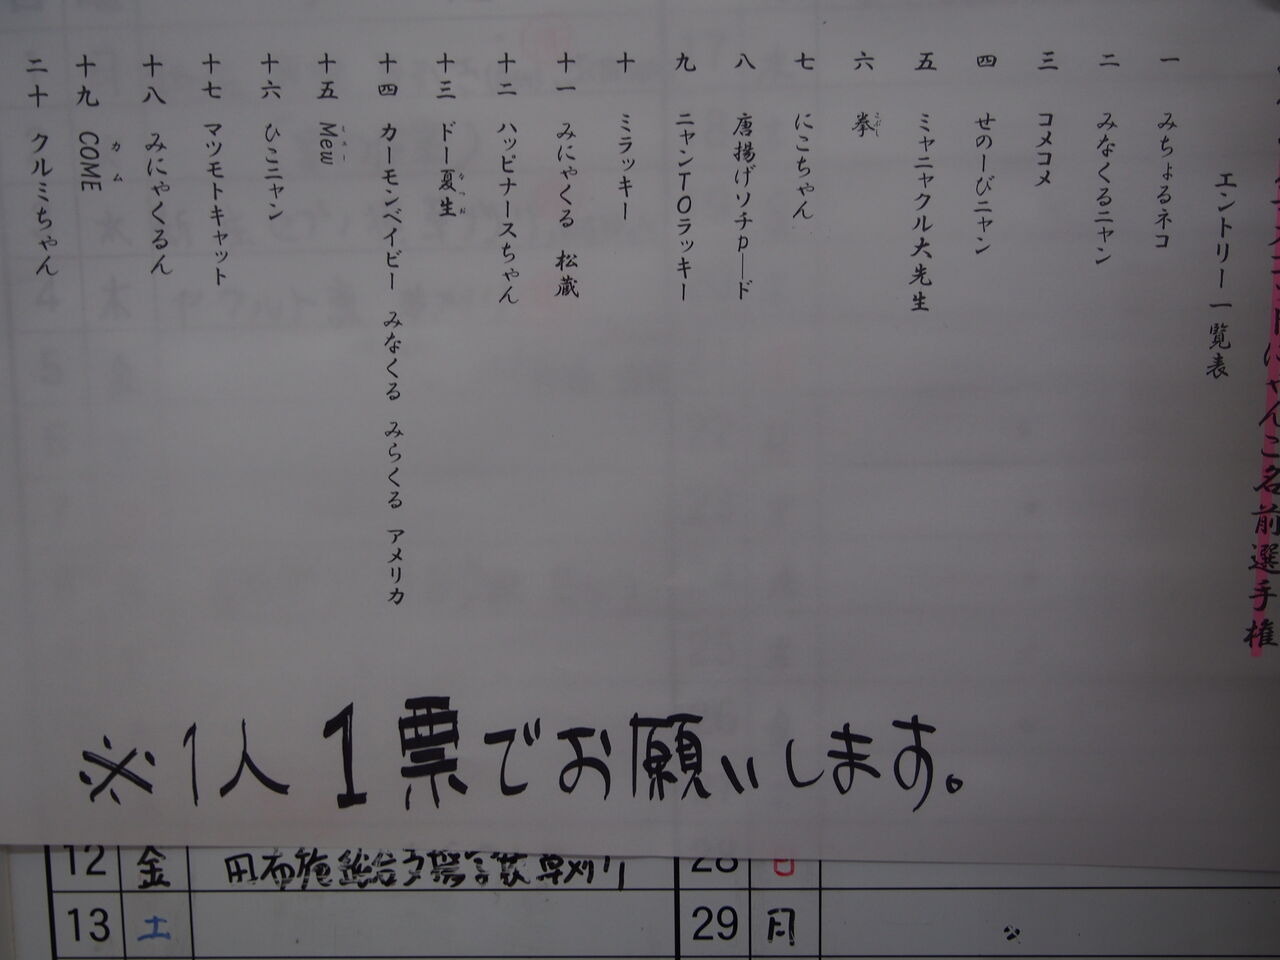 にゃんこ名前選手権
エントリー一覧表
一 みちょるネコ
二 みなくるニャン
三 コメコメ
四 せのーびニャン
五 ミャニャクル大先生
六 拳
こぶし
七 にこちゃん
八 唐揚げソチロード
九 ニャンTOラッキー
十 ミラッキー
十一 みにゃくる 松蔵
十二 ハッピナースちゃん
十三 ドー夏生
なつお
十四 カーモンベイビー みなくる みらくる アメリカ
十五 Mew
ミュー
十六 ひこニャン
十七 マツモトキャット
十八 みにゃくるん
十九 COME
カム
二十 クルミちゃん
※1人1票でお願いします。
12 金 草刈り 28 日
13 土 29 月